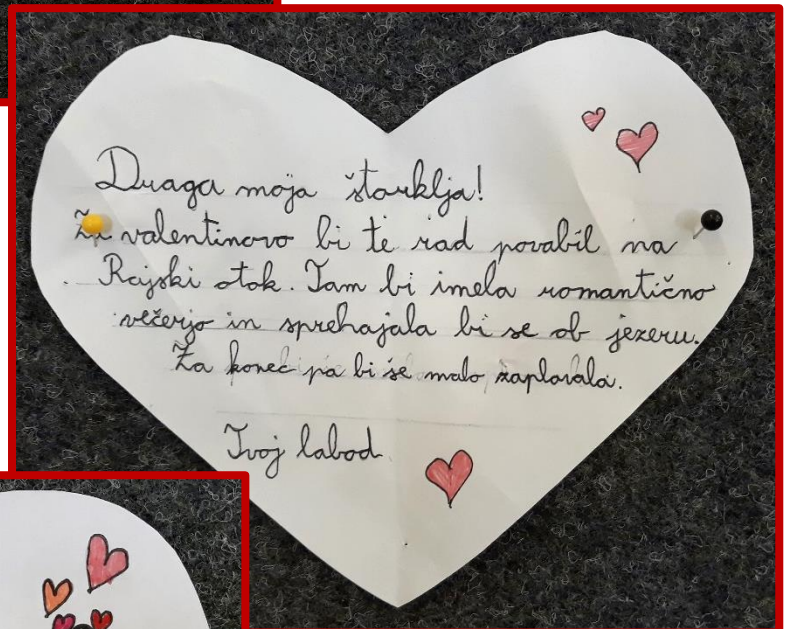 Draga moja štorklja!
Za valentinovo bi te rad povabil na
Rajski otok. Tam bi imela romantično
večerjo in sprehajala bi se ob jezeru.
Za konec pa bi še malo zaplavala.
Tvoj labod